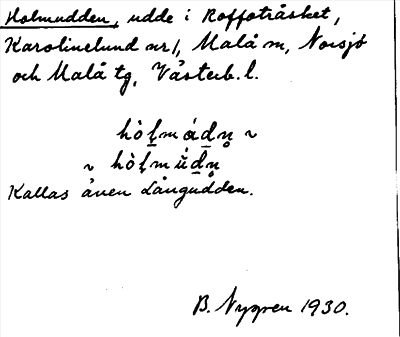 Holmudden, udde i Roffoträsket,
Karolinelund nr 1, Malå sn, Norsjö
och Malå tg, Västerb. l.
hòl̥máḍṇ ~
~ hòl̥múḍṇ
Kallas även Långudden.
B. Nygren 1930.